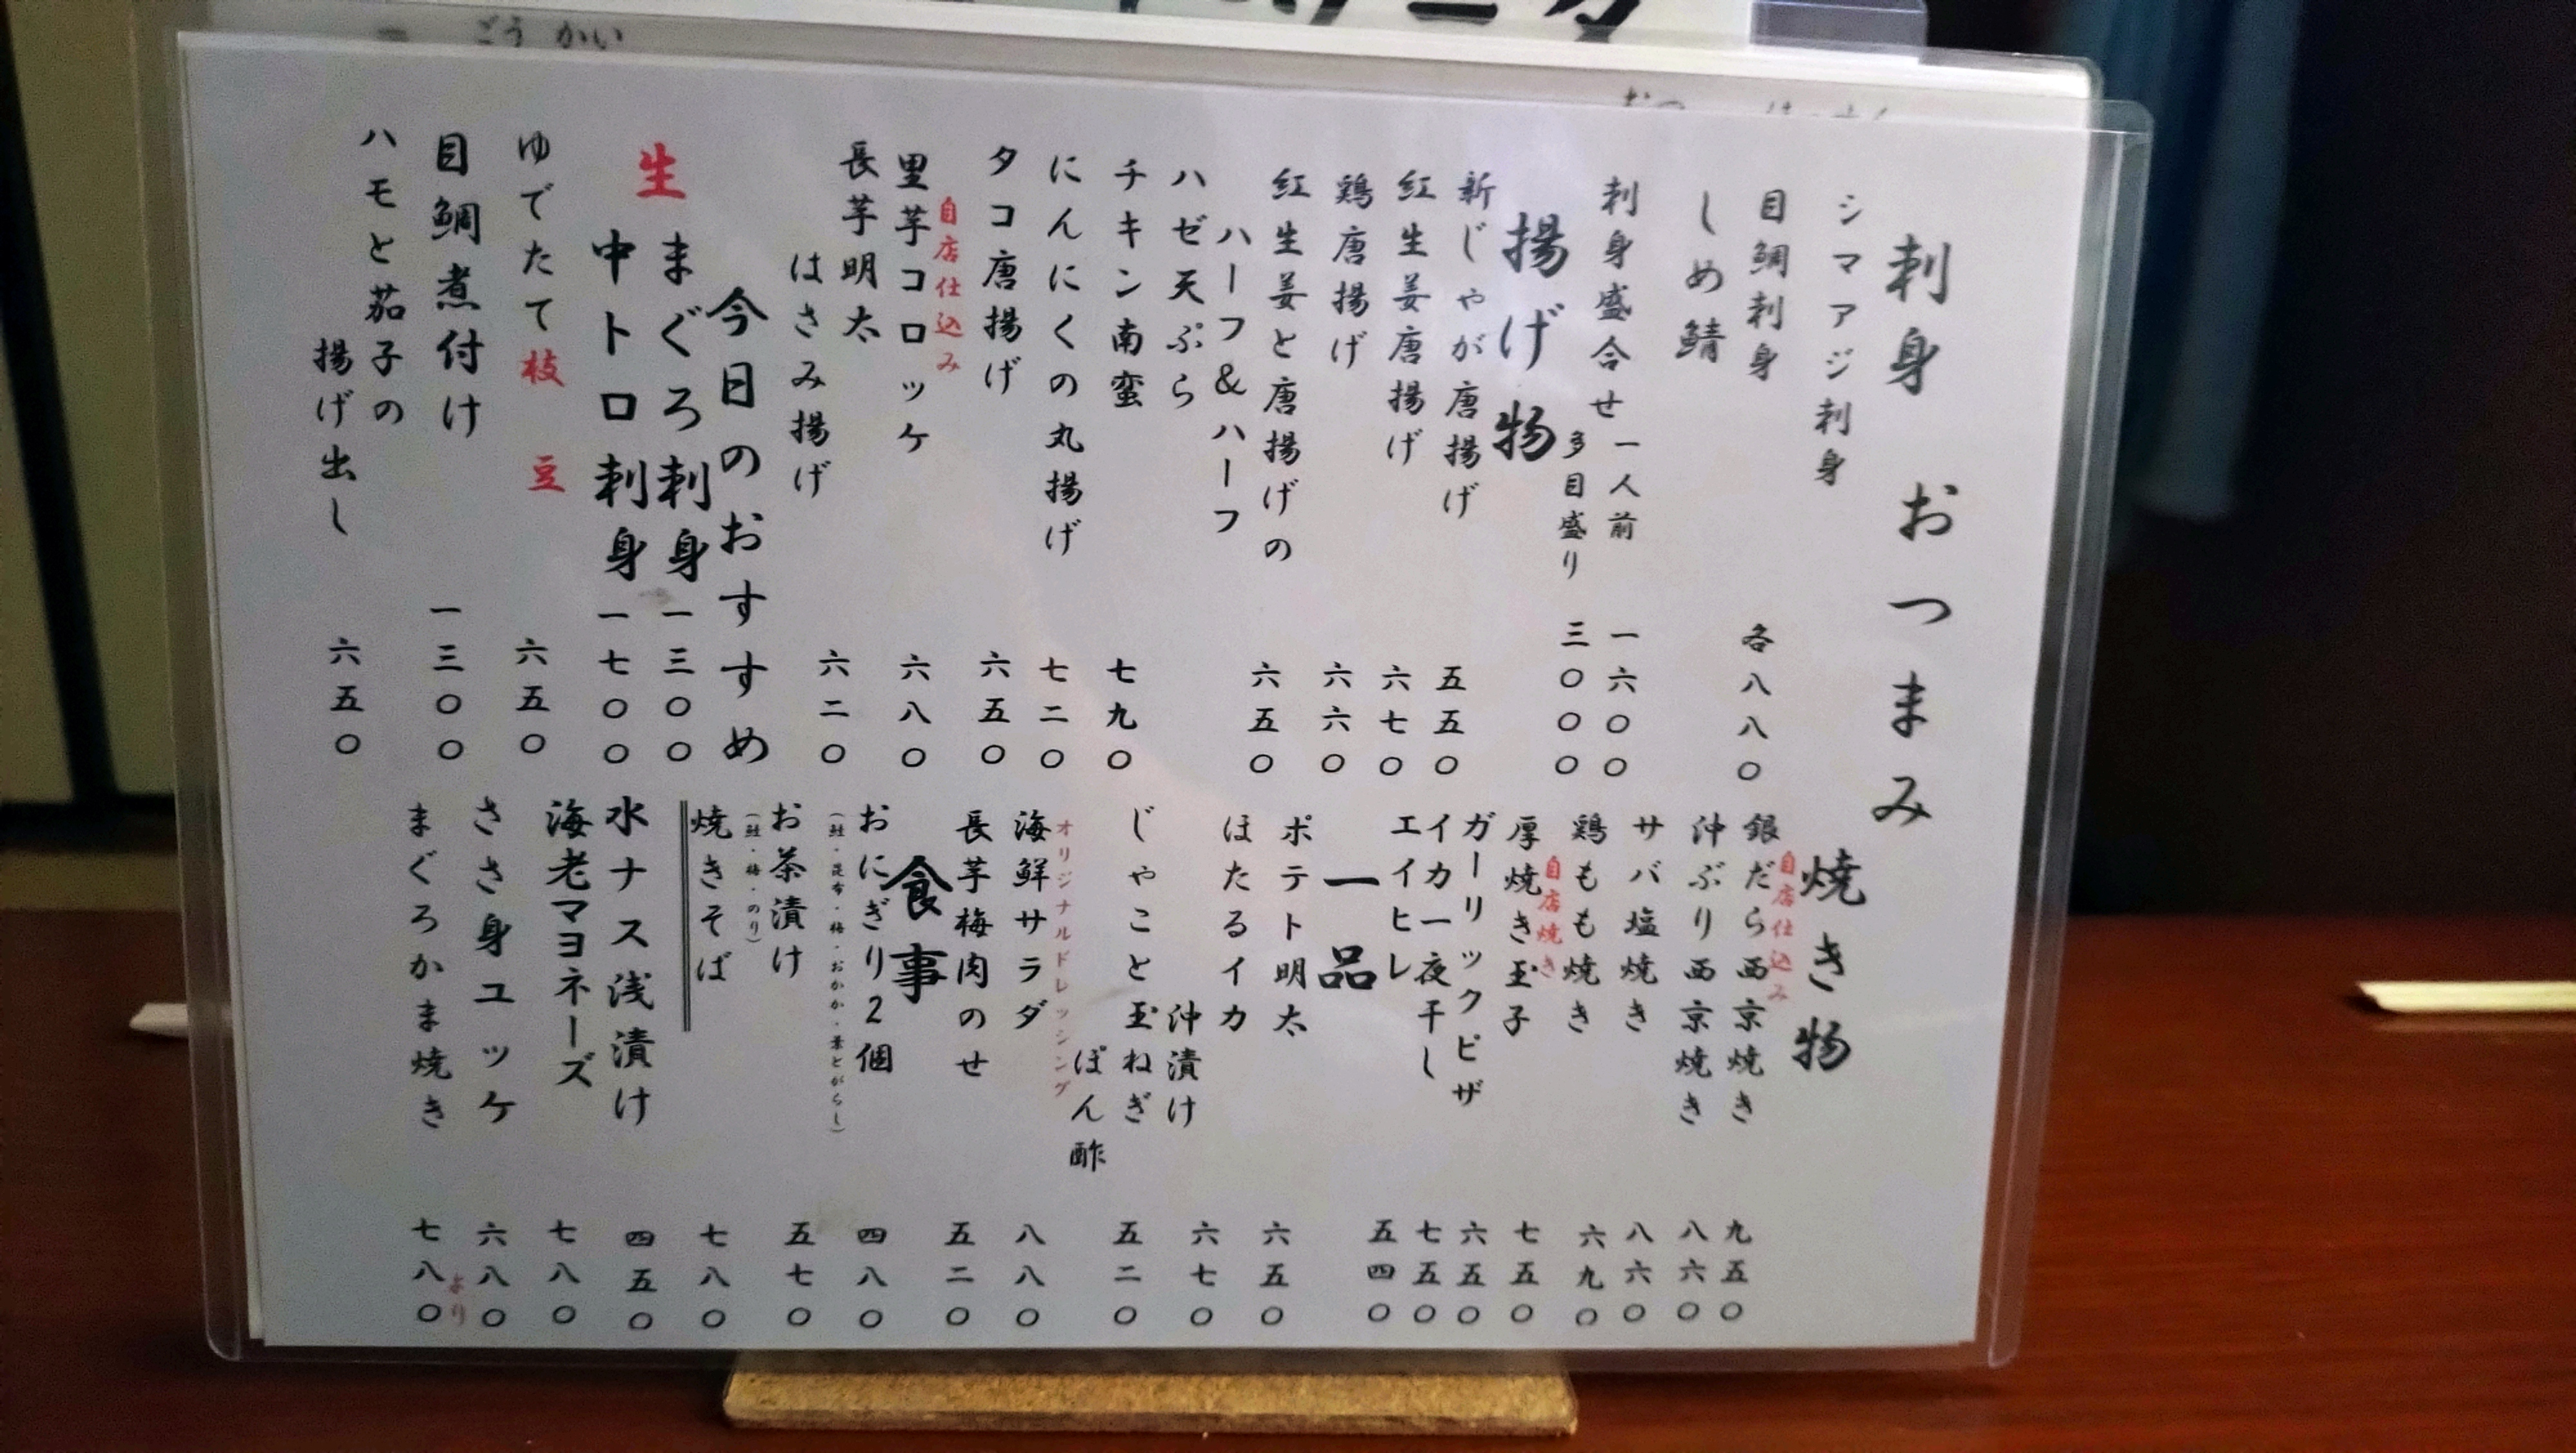 おつまみ
刺身
シマアジ刺身
目鯛刺身
しめ鯖
各八八〇
刺身盛合せ 一人前 一六〇〇
多目盛り 三〇〇〇
揚げ物
新じゃが唐揚げ 五五〇
紅生姜唐揚げ 六七〇
鶏唐揚げ 六六〇
紅生姜と唐揚げの 六五〇
ハーフ&ハーフ
ハゼ天ぷら
チキン南蛮 七九〇
にんにくの丸揚げ 七二〇
タコ唐揚げ 六五〇
自店仕込み
里芋コロッケ 六八〇
長芋明太
はさみ揚げ 六二〇
今日のおすすめ
生
まぐろ刺身 一三〇〇
中トロ刺身 一七〇〇
ゆでたて枝豆 六五〇
目鯛煮付け 一三〇〇
ハモと茄子の
揚げ出し 六五〇
焼き物
自店仕込み
銀だら西京焼き 九五〇
沖ぶり西京焼き 八六〇
サバ塩焼き 八六〇
鶏もも焼き 六九〇
自店焼き
厚焼き玉子 七五〇
ガーリックピザ 六五〇
イカ一夜干し 七五〇
エイヒレ 五四〇
一品
ポテト明太 六五〇
ほたるイカ
沖漬け 六七〇
じゃこと玉ねぎ
ぽん酢 五二〇
オリジナルドレッシング
海鮮サラダ 八八〇
長芋梅肉のせ 五二〇
食事
おにぎり2個 四八〇
(鮭・昆布・梅・おかか・葉とがらし)
お茶漬け 五七〇
(鮭・梅・のり)
焼きそば 七八〇
水ナス浅漬け 四五〇
海老マヨネーズ 七八〇
ささ身ユッケ 六八〇
まぐろかま焼き 七八〇より
ごうかい